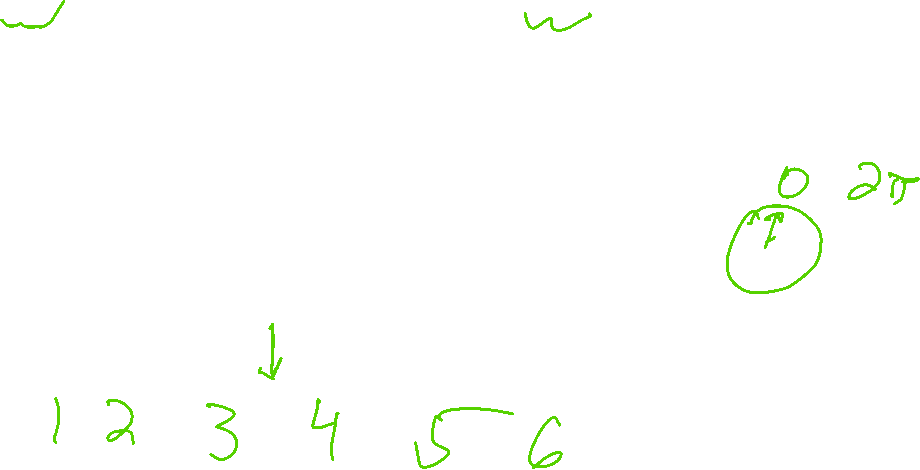 0 2π
1 2 3 4 5 6